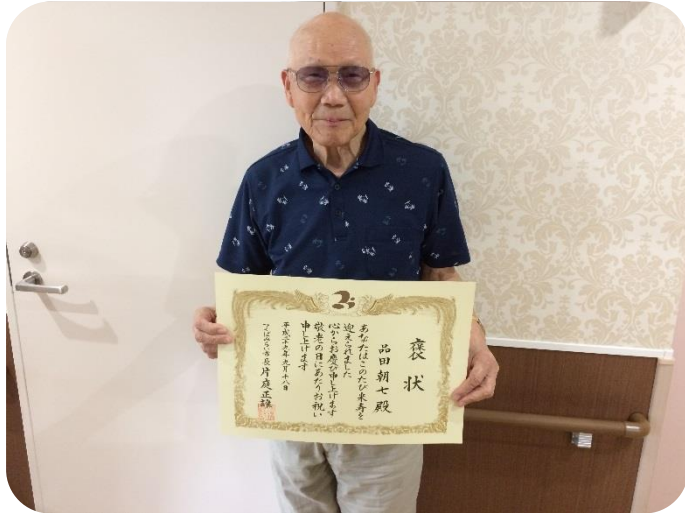 褒状
品田朝七殿
あなたはこのたび米寿を
迎えられました
心からお慶び申し上げます
敬老の日にあたりお祝い
申し上げます
平成二十九年九月十八日
つくばみらい市長 片庭正雄